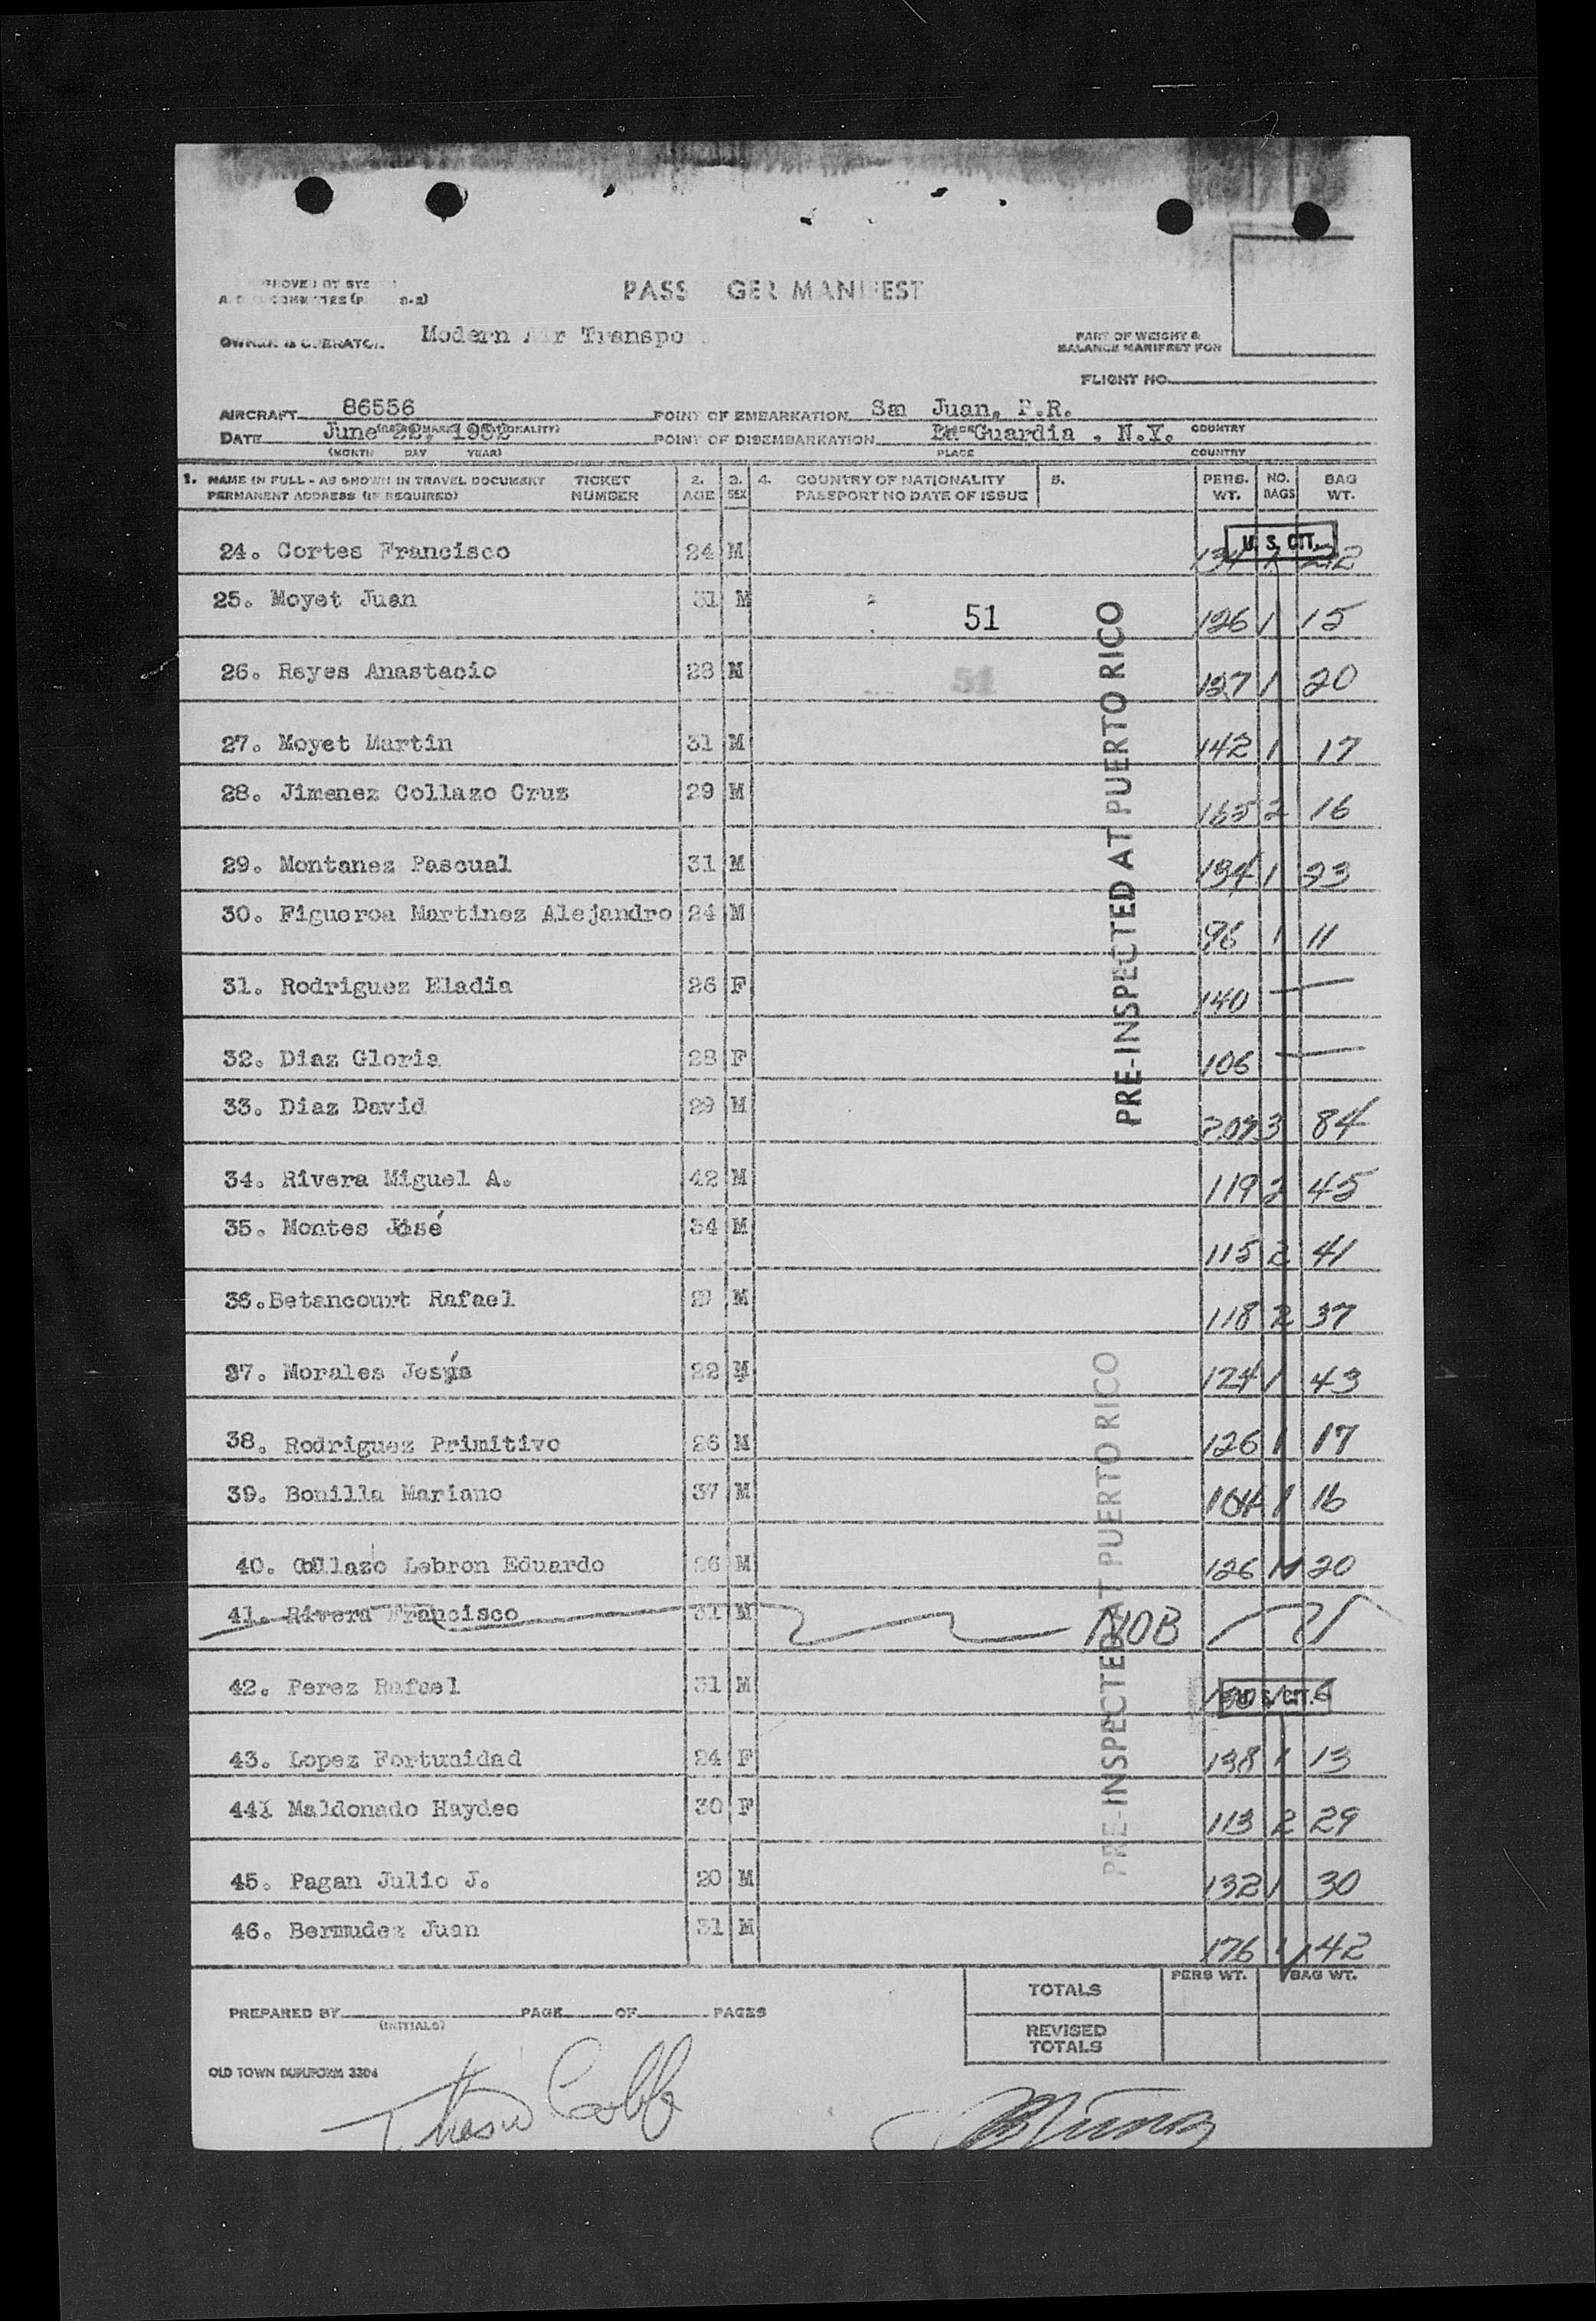 PASS GER MANIFEST
OWNER
Modern Air Transpo
PART OF WEIGHT &
BALANCE MANIFEST FOR
FLIGHT NO.
AIRCRAFT 86556 POINT OF EMBARKATION San Juan, P.R.
DATE June 22, 1952 POINT OF DISEMBARKATION La Guardia , N.Y. COUNTRY
(MONTH DAY YEAR) PLACE COUNTRY
1. NAME IN FULL - AS SHOWN IN TRAVEL DOCUMENT TICKET 2. 3. 4. COUNTRY OF NATIONALITY 5. PERS. NO. BAG
PERMANENT ADDRESS (IF REQUIRED) NUMBER AGE SEX PASSPORT NO DATE OF ISSUE WT. BAGS WT.
U. S. CIT.
24. Cortes Francisco 24 M 134 1 22
25. Moyet Juan 31 M 51 126 1 15
26. Reyes Anastacio 28 M 51 127 1 20
27. Moyet Martin 31 M 142 1 17
28. Jimenez Collazo Cruz 29 M 165 2 16
29. Montanez Pascual 31 M 134 1 23
30. Figueroa Martinez Alejandro 24 M 96 1 11
31. Rodriguez Eladia 26 F 140 —
32. Diaz Gloria 28 F 106 —
33. Diaz David 29 M 207 3 84
PRE-INSPECTED AT PUERTO RICO
34. Rivera Miguel A. 42 M 119 2 45
35. Montes José 34 M 115 2 41
36.Betancourt Rafael M 118 2 37
37. Morales Jesús 22 M 124 1 43
38. Rodriguez Primitivo 26 M 126 1 17
39. Bonilla Mariano 37 M 104 1 16
40. Collazo Lebron Eduardo 26 M 126 1 20
41. Rivera Francisco 31 M NOB
42. Perez Rafael 31 M
U. S. CIT.
43. Lopez Fortunidad 24 F 138 1 13
44 Maldonado Haydee 30 F 113 2 29
45. Pagan Julio J. 20 M 132 1 30
46. Bermudez Juan 31 M 176 1 42
PRE-INSPECTED AT PUERTO RICO
TOTALS PERS WT. BAG WT.
PREPARED BY PAGE OF PAGES
(INITIALS)
REVISED
TOTALS
OLD TOWN DUPLIFORM 3204